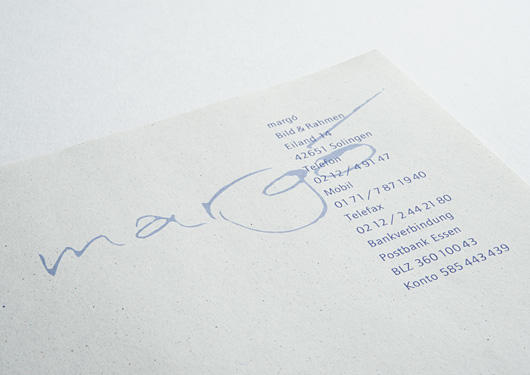 margó
margó
Bild & Rahmen
Eiland 14
42651 Solingen
Telefon
02 12 / 4 91 47
Mobil
01 71 / 7 87 19 40
Telefax
02 12 / 2 44 21 80
Bankverbindung
Postbank Essen
BLZ 360 100 43
Konto 585 443 439